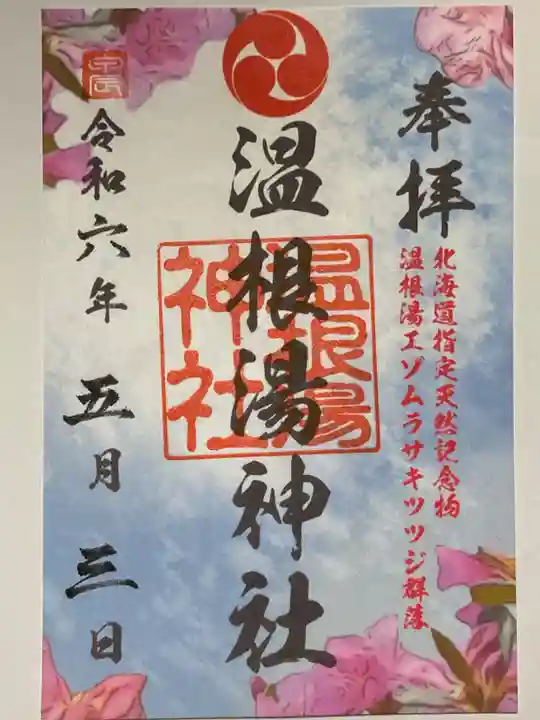 奉拝
北海道指定天然記念物
温根湯エゾムラサキツツジ群落
温根湯神社
温根湯
神社
令和六年 五月 三日